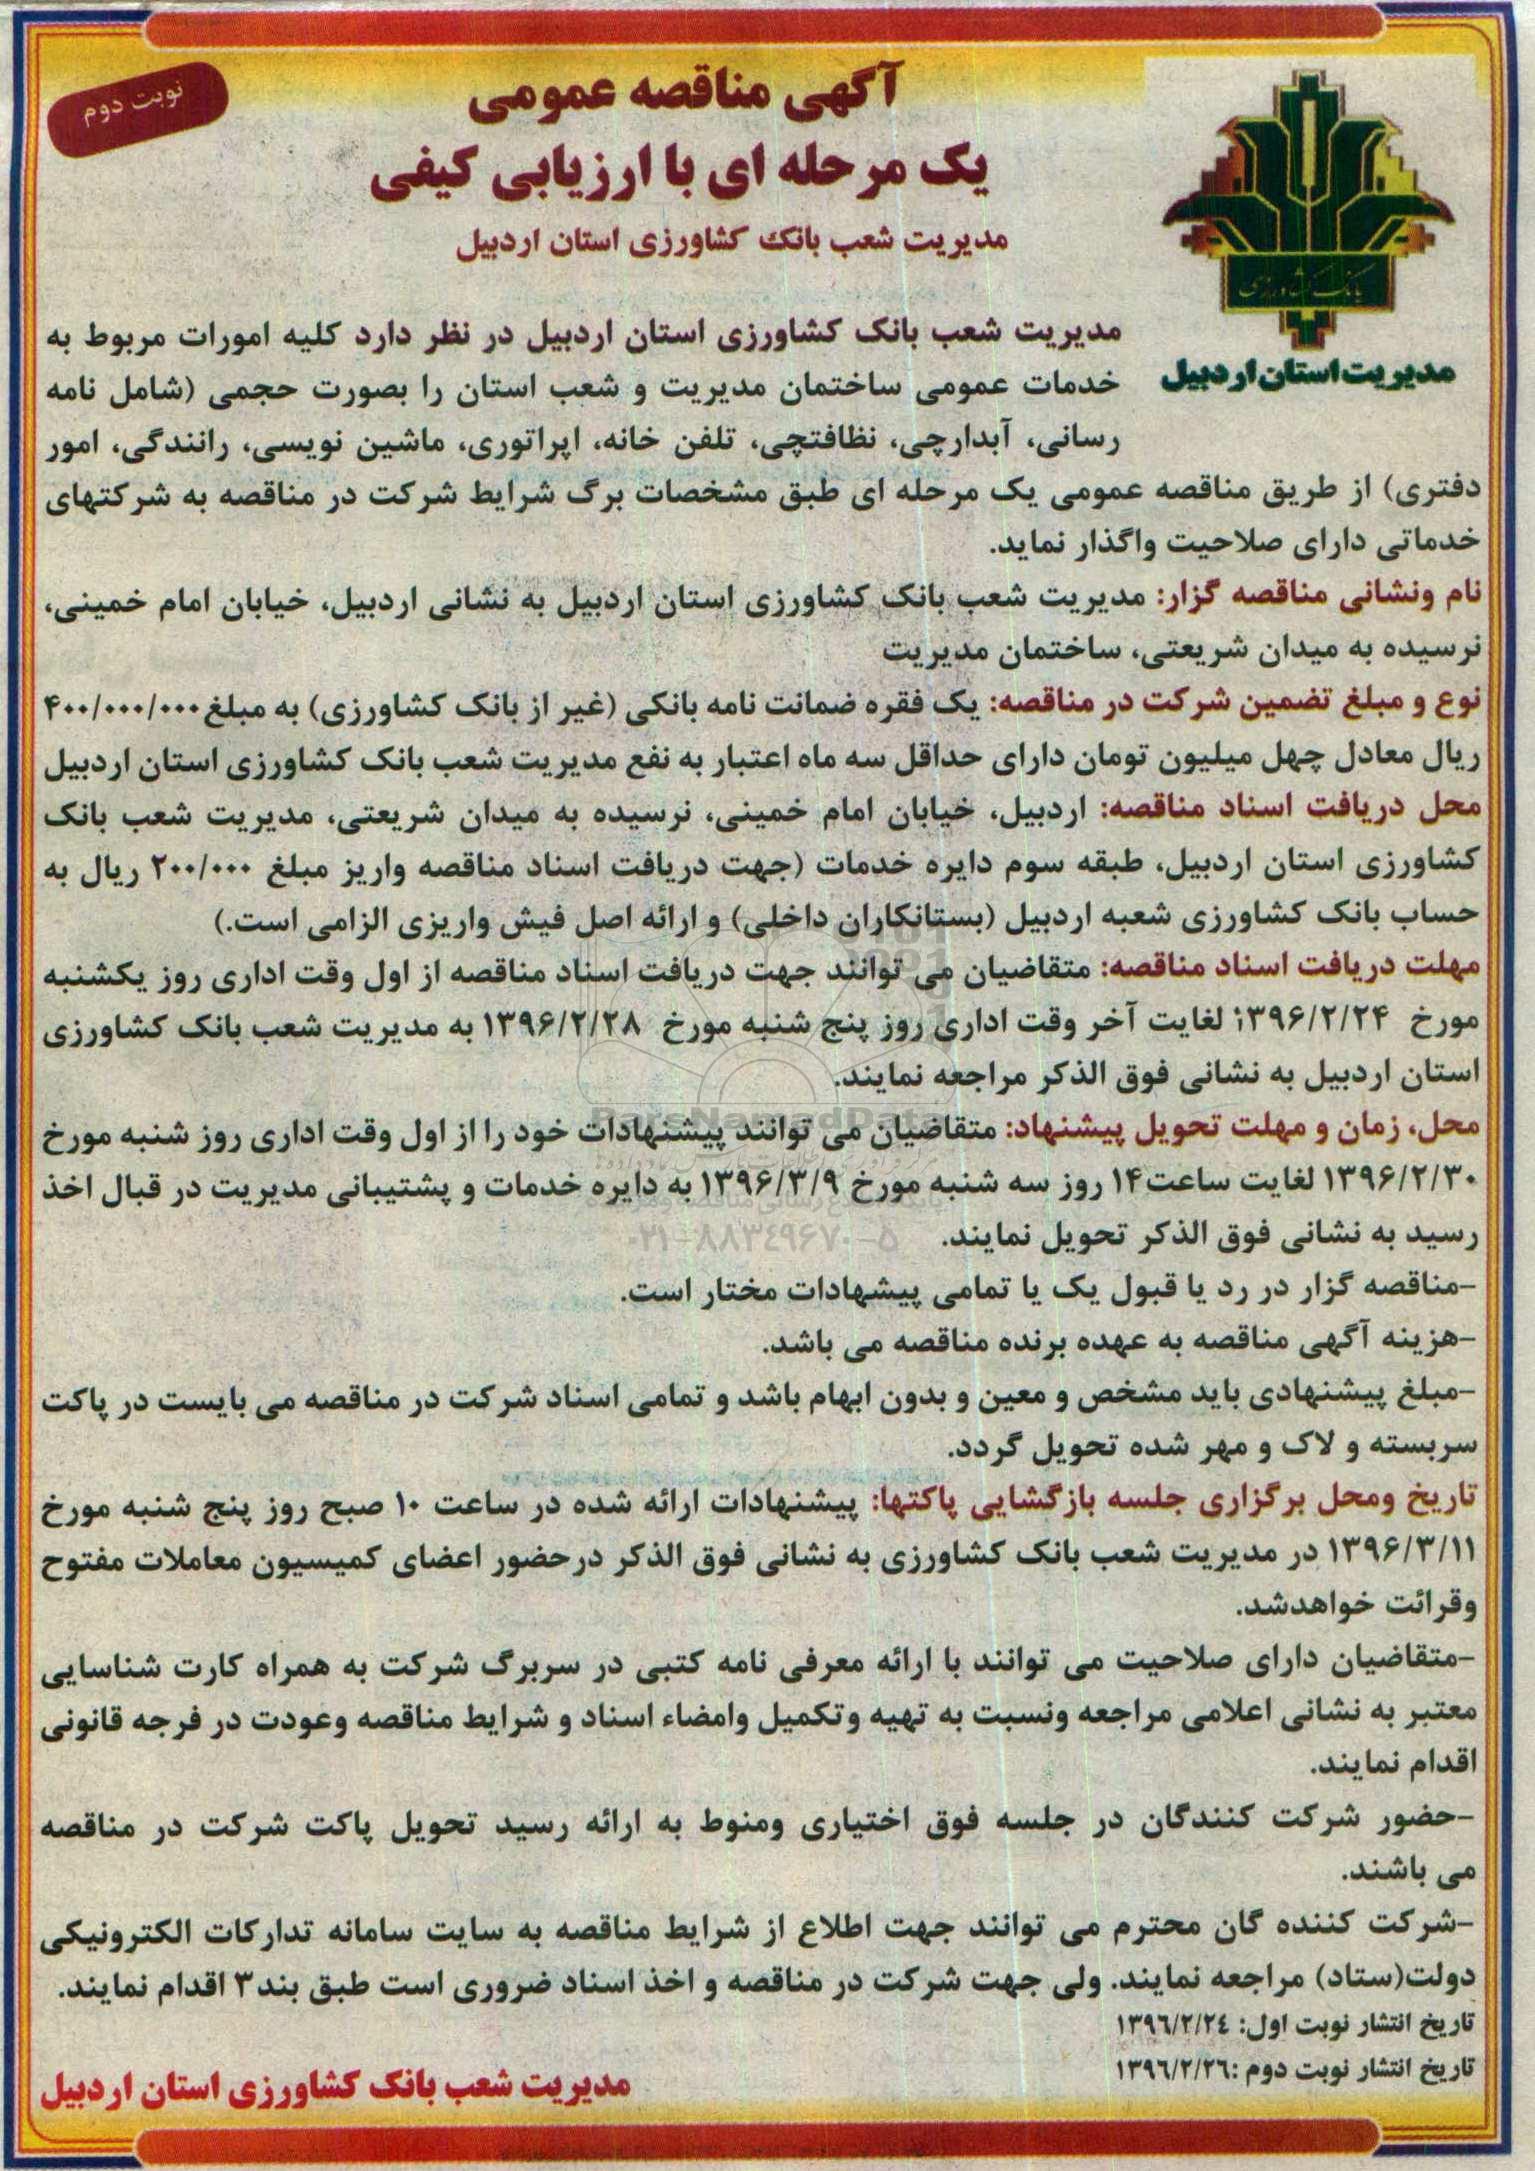 نوبت دوم
آگهی مناقصه عمومی
یک مرحله ای با ارزیابی کیفی
مدیریت شعب بانک کشاورزی استان اردبیل
بانک کشاورزی
مدیریت استان اردبیل
مدیریت شعب بانک کشاورزی استان اردبیل در نظر دارد کلیه امورات مربوط به
خدمات عمومی ساختمان مدیریت و شعب استان را بصورت حجمی (شامل نامه
رسانی، آبدارچی، نظافتچی، تلفن خانه، اپراتوری، ماشین نویسی، رانندگی، امور
دفتری) از طریق مناقصه عمومی یک مرحله ای طبق مشخصات برگ شرایط شرکت در مناقصه به شرکتهای
خدماتی دارای صلاحیت واگذار نماید.
نام ونشانی مناقصه گزار: مدیریت شعب بانک کشاورزی استان اردبیل به نشانی اردبیل، خیابان امام خمینی،
نرسیده به میدان شریعتی، ساختمان مدیریت
نوع و مبلغ تضمین شرکت در مناقصه: یک فقره ضمانت نامه بانکی (غیر از بانک کشاورزی) به مبلغ ۴۰۰/۰۰۰/۰۰۰
ریال معادل چهل میلیون تومان دارای حداقل سه ماه اعتبار به نفع مدیریت شعب بانک کشاورزی استان اردبیل
محل دریافت اسناد مناقصه: اردبیل، خیابان امام خمینی، نرسیده به میدان شریعتی، مدیریت شعب بانک
کشاورزی استان اردبیل، طبقه سوم دایره خدمات (جهت دریافت اسناد مناقصه واریز مبلغ ۲۰۰/۰۰۰ ریال به
حساب بانک کشاورزی شعبه اردبیل (بستانکاران داخلی) و ارائه اصل فیش واریزی الزامی است.)
مهلت دریافت اسناد مناقصه: متقاضیان می توانند جهت دریافت اسناد مناقصه از اول وقت اداری روز یکشنبه
مورخ ۱۳۹۶/۲/۲۴ لغایت آخر وقت اداری روز پنج شنبه مورخ ۱۳۹۶/۲/۲۸ به مدیریت شعب بانک کشاورزی
استان اردبیل به نشانی فوق الذکر مراجعه نمایند.
ParsNamadData
محل، زمان و مهلت تحویل پیشنهاد: متقاضیان می توانند پیشنهادات خود را از اول وقت اداری روز شنبه مورخ
۱۳۹۶/۲/۳۰ لغایت ساعت۱۴ روز سه شنبه مورخ ۱۳۹۶/۳/۹ به دایره خدمات و پشتیبانی مدیریت در قبال اخذ
رسید به نشانی فوق الذکر تحویل نمایند.
۰۲۱-۸۸۳۴۹۶۷۰-۵
-مناقصه گزار در رد یا قبول یک یا تمامی پیشهادات مختار است.
-هزینه آگهی مناقصه به عهده برنده مناقصه می باشد.
-مبلغ پیشنهادی باید مشخص و معین و بدون ابهام باشد و تمامی اسناد شرکت در مناقصه می بایست در پاکت
سربسته و لاک و مهر شده تحویل گردد.
تاریخ ومحل برگزاری جلسه بازگشایی پاکتها: پیشنهادات ارائه شده در ساعت ۱۰ صبح روز پنج شنبه مورخ
۱۳۹۶/۳/۱۱ در مدیریت شعب بانک کشاورزی به نشانی فوق الذکر درحضور اعضای کمیسیون معاملات مفتوح
وقرائت خواهدشد.
-متقاضیان دارای صلاحیت می توانند با ارائه معرفی نامه کتبی در سربرگ شرکت به همراه کارت شناسایی
معتبر به نشانی اعلامی مراجعه ونسبت به تهیه وتکمیل وامضاء اسناد و شرایط مناقصه وعودت در فرجه قانونی
اقدام نمایند.
-حضور شرکت کنندگان در جلسه فوق اختیاری ومنوط به ارائه رسید تحویل پاکت شرکت در مناقصه
می باشند.
-شرکت کننده گان محترم می توانند جهت اطلاع از شرایط مناقصه به سایت سامانه تدارکات الکترونیکی
دولت(ستاد) مراجعه نمایند. ولی جهت شرکت در مناقصه و اخذ اسناد ضروری است طبق بند۳ اقدام نمایند.
تاریخ انتشار نوبت اول: ۱۳۹٦/۲/۲٤
تاریخ انتشار نوبت دوم :۱۳۹٦/۲/۲٦
مدیریت شعب بانک کشاورزی استان اردبیل